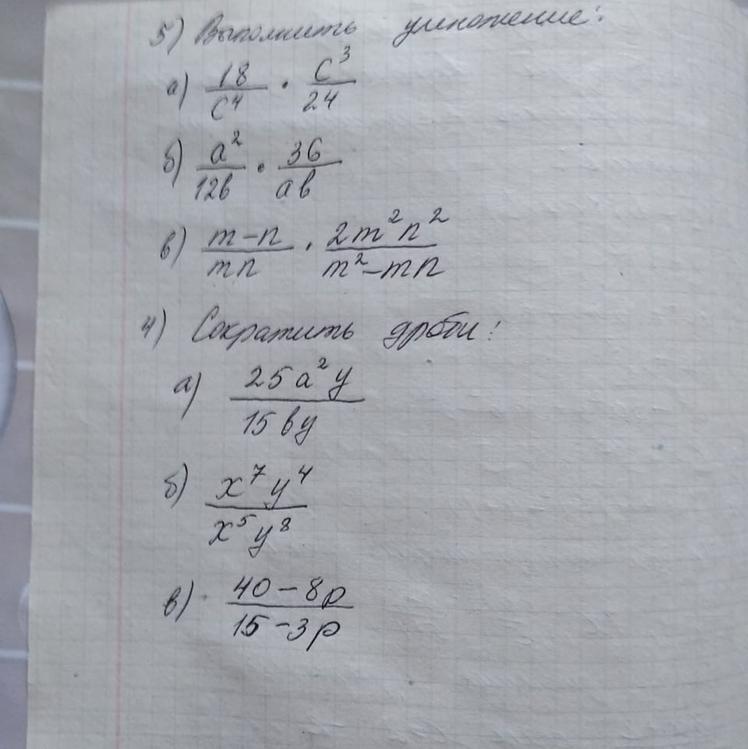 5) Выполнить умножение:
а) 18/c⁴ · c³/24
б) a²/12b · 36/ab
в) m-n/mn · 2m²n²/m²-mn
4) Сократить дроби:
а) 25a²y/15by
б) x⁷y⁴/x⁵y⁸
в) 40-8p/15-3p